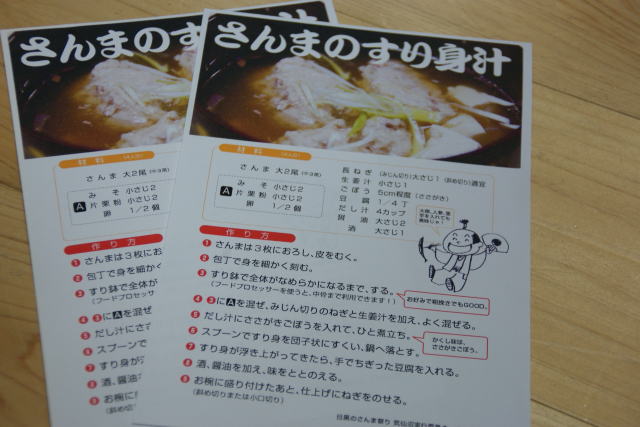 さんまのす
さんまのすり身汁
材料 (4人分)
さんま 大2尾 (中3尾)
A
みそ 小さじ2
片栗粉 小さじ2
卵 1/2個
作り方
1 さんまは3枚にお
2 包丁で身を細かく
3 すり鉢で全体が
(フードプロセッサ
4 3にAを混ぜ
5 だし汁にささが
6 スプーンです
7 すり身が
8 酒、醤油
9 お椀に
(斜め切
材料 (4人分)
さんま 大2尾 (中3尾)
A
みそ 小さじ2
片栗粉 小さじ2
卵 1/2個
長ねぎ (みじん切り)大さじ1 (斜め切り)適宜
生姜汁 小さじ1
ごぼう 5cm程度 (ささがき)
豆腐 1/4丁
だし汁 4カップ
醤油 大さじ2
酒 大さじ1
作り方
1 さんまは3枚におろし、皮をむく。
2 包丁で身を細かく刻む。
3 すり鉢で全体がなめらかになるまで、する。
(フードプロセッサーを使うと、中骨まで利用できます!)
お好みで粗挽きでもGOOD。
4 3にAを混ぜ、みじん切りのねぎと生姜汁を加え、よく混ぜる。
5 だし汁にささがきごぼうを入れて、ひと煮立ち。
かくし味は、
ささがきごぼう。
6 スプーンですり身を団子状にすくい、鍋へ落とす。
7 すり身が浮き上がってきたら、手でちぎった豆腐を入れる。
8 酒、醤油を加え、味をととのえる。
9 お椀に盛り付けたあと、仕上げにねぎをのせる。
(斜め切りまたは小口切り)
目黒のさんま祭り 気仙沼実行委員会